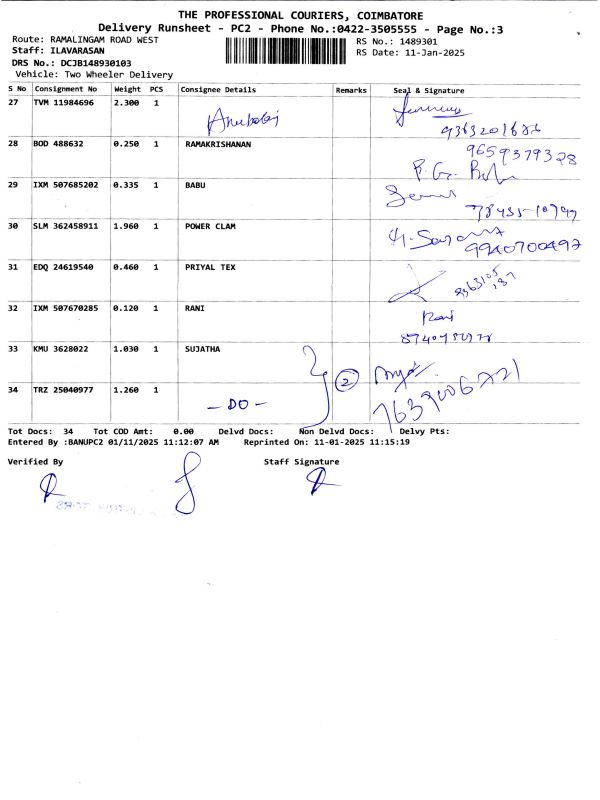 THE PROFESSIONAL COURIERS, COIMBATORE
Delivery Runsheet - PC2 - Phone No.:0422-3505555 - Page No.:3
Route: RAMALINGAM ROAD WEST
RS No.: 1489301
Staff: ILAVARASAN
RS Date: 11-Jan-2025
DRS No.: DCJB148930103
Vehicle: Two Wheeler Delivery
S No Consignment No Weight PCS Consignee Details Remarks Seal & Signature
27 TVM 11984696 2.300 1
28 BOD 488632 0.250 1 RAMAKRISHANAN 9659379328
29 IXM 507685202 0.335 1 BABU
30 SLM 362458911 1.960 1 POWER CLAM 9940700497
31 EDQ 24619540 0.460 1 PRIYAL TEX
32 IXM 507670285 0.120 1 RANI Rani
33 KMU 3628022 1.030 1 SUJATHA
2
34 TRZ 25040977 1.260 1 - DO - 7639006721
Tot Docs: 34 Tot COD Amt: 0.00 Delvd Docs: Non Delvd Docs: Delvy Pts:
Entered By :BANUPC2 01/11/2025 11:12:07 AM Reprinted On: 11-01-2025 11:15:19
Verified By Staff Signature